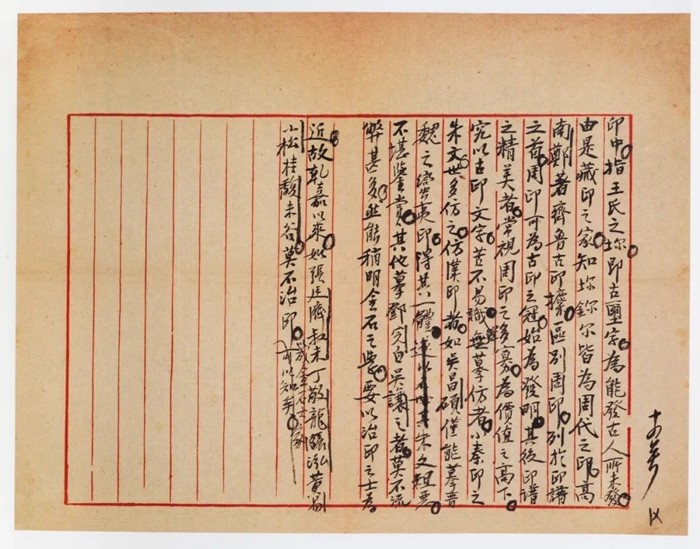 印中指王氏之即古璽字為能發古人所未發
由是藏印之家知鉨尔皆為周代之印高
南鄭著齊魯古印攈區别周印列於印譜
之首周印可為古印之冠始為發明其後印譜
之精美者常視周印之多寡為價值之高下
究以古印文字苦不易識無摹仿者小秦印之
朱文世多仿之仿漢印者如吳昌碩僅能摹晉
魏之蠻夷印得其一體朱文粗惡
不堪鑒賞其他摹鄧完白吳讓之者莫不流
弊甚多然能稍明金石之學要以治印之士為
近故乾嘉以來如張廷濟叔未丁敬龍泓黄易
小松桂馥未谷莫不治印
可以知矣